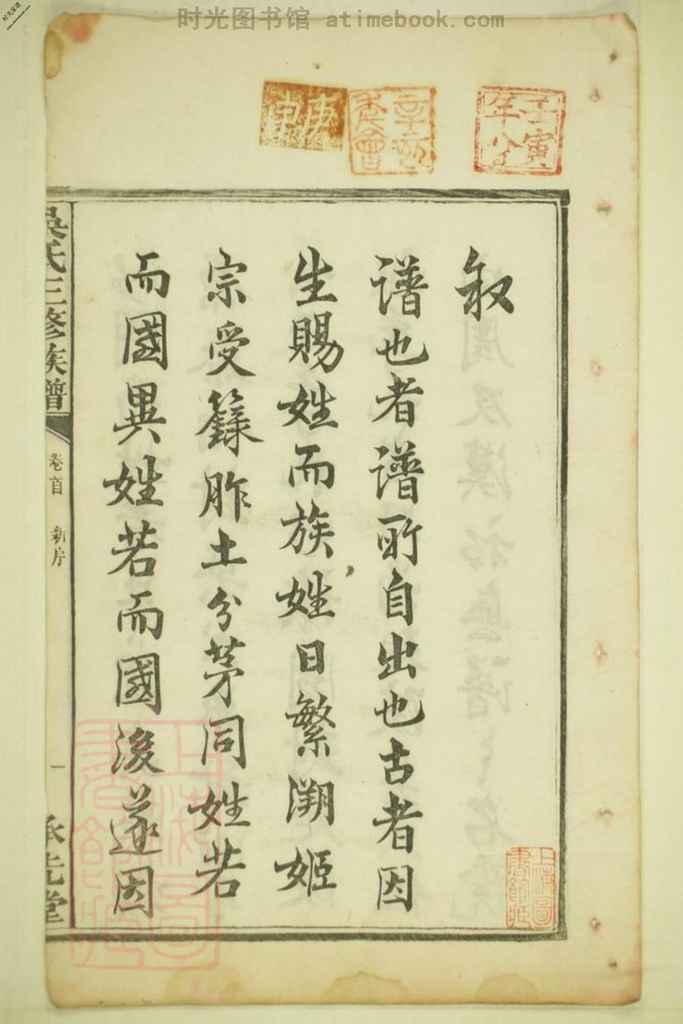 时光图书馆 atimebook.com
壬寅年分
叙
譜也者譜所自出也古者因
生賜姓而族姓日繁溯姬
宗受籙胙土分茅同姓若
而國異姓若而國後遂因
吳氏三修族譜
卷首 新序
一
承先堂